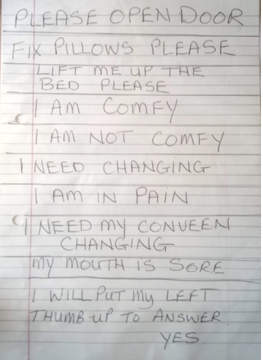 PLEASE OPEN DOOR
FIX PILLOWS PLEASE
LIFT ME UP THE
BED PLEASE
I AM COMFY
I AM NOT COMFY
I NEED CHANGING
I AM IN PAIN
I NEED MY CONVEEN
CHANGING
MY MOUTH IS SORE
I WILL PUT MY LEFT
THUMB UP TO ANSWER
YES